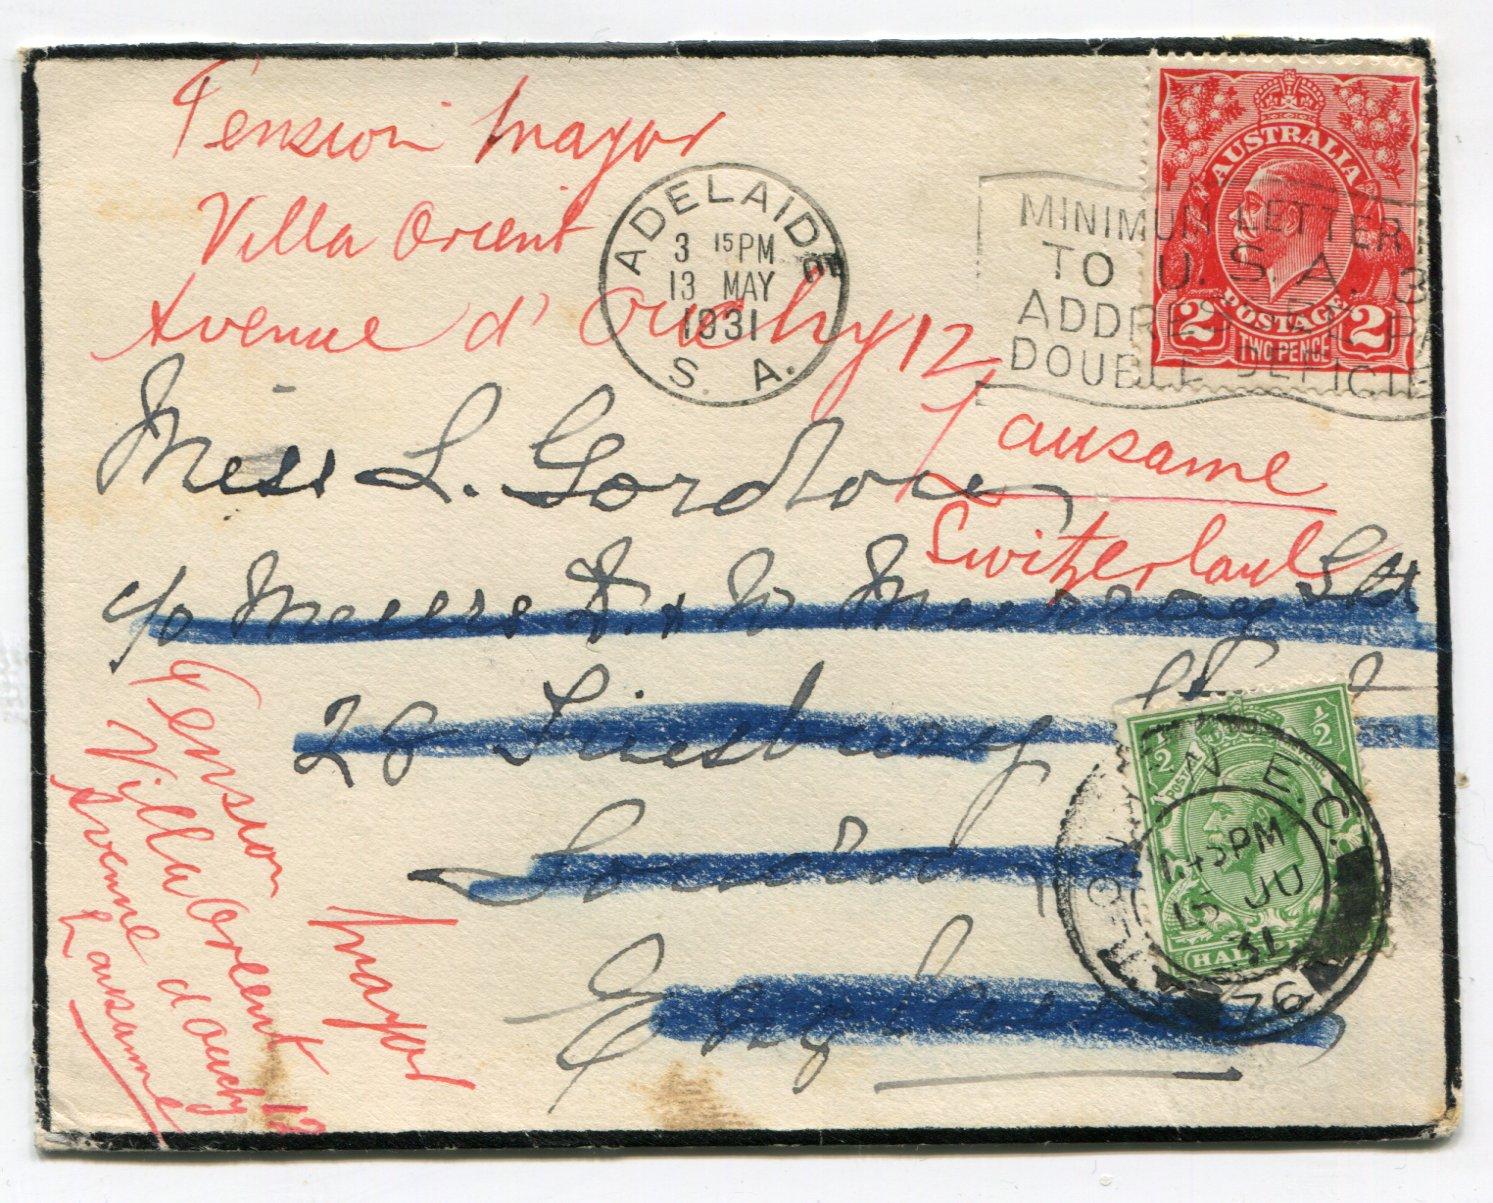 Pension Mayor
Villa Orient
Avenue d'Ouchy 12
Lausanne
Switzerland
ADELAIDE
3 15PM
13 MAY
1931
S. A.
MINIMUM LETTER
TO U.S.A. 3
ADDRESSEE PA
DOUBLE DEFICIE
AUSTRALIA
POSTAGE
2 TWO PENCE 2
Miss L. Gordon
c/o Messrs D. & W Murray Ltd
28 Finsbury
London
England
½ ½
POSTAGE
HALF
LONDON E.C.
45PM
15 JU
31
76
Pension Mayor
Villa Orient
Avenue d'Ouchy 12
Lausanne